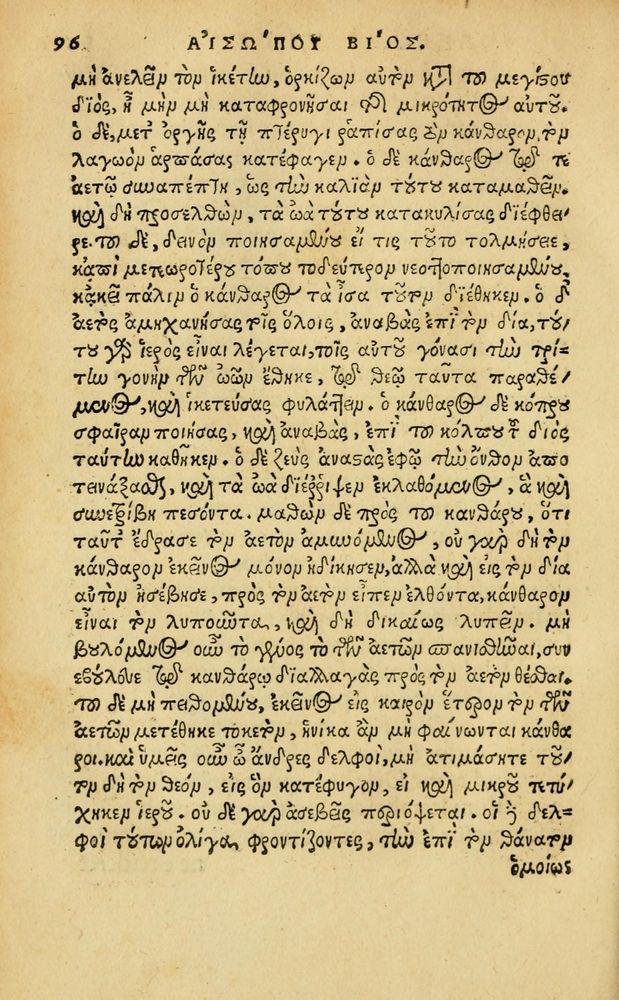 96 ΑἸΣΩ´ΠΟΥ ΒΙ´ΟΣ.
μὴ ἀνελεῖν τὸν ἱκέτην, ὁρκίζων αὐτὸν κατὰ τοῦ μεγίστου
διὸς, ἦ μὴν μὴ καταφρονῆσαι τῆς μικρότητος αὐτοῦ.
ὁ δὲ, μετ' ὀργῆς τῇ πτέρυγι ῥαπίσας τὸν κάνθαρον, τὸν
λαγωὸν ἁρπάσας κατέφαγεν. ὁ δὲ κάνθαρος τῷ τε
ἀετῷ συναπέπτη, ὡς τὴν καλιὰν τούτου καταμαθεῖν.
καὶ δὴ προσελθὼν, τὰ ὠὰ τούτου κατακυλίσας διέφθει-
ρε. τοῦ δὲ, δεινὸν ποιησαμένου εἴ τις τοῦτο τολμήσειε,
κἀπὶ μετεωροτέρου τόπου τὸ δεύτερον νεοττοποιησαμένου,
κἀκεῖ πάλιν ὁ κάνθαρος τὰ ἴσα τοῦτον διέθηκεν. ὁ δ'
ἀετὸς ἀμηχανήσας τοῖς ὅλοις, ἀναβὰς ἐπὶ τὸν δία, τού-
του γὰρ ἱερὸς εἶναι λέγεται, τοῖς αὐτοῦ γόνασι τὴν τρί-
την γονὴν τῶν ὠῶν ἔθηκε, τῷ θεῷ ταῦτα παραθέ-
μενος, καὶ ἱκετεύσας φυλάττειν. ὁ κάνθαρος δὲ κόπρου
σφαῖραν ποιήσας, καὶ ἀναβὰς, ἐπὶ τοῦ κόλπου τοῦ διὸς
ταύτην καθῆκεν. ὁ δὲ ζεὺς ἀναστὰς ἐφ' ᾧ τὴν ὄνθον ἀπο
τινάξασθαι, καὶ τὰ ὠὰ διέῤῥιψεν ἐκλαθόμενος, ἃ καὶ
συνετρίβη πεσόντα. μαθὼν δὲ πρὸς τοῦ κανθάρου, ὅτι
ταῦτ' ἔδρασε τὸν ἀετὸν ἀμυνόμενος, οὐ γὰρ δὴ τὸν
κάνθαρον ἐκεῖνος μόνον ἠδίκησεν, ἀλλὰ καὶ εἰς τὸν δία
αὐτὸν ἠσέβησε, πρὸς τὸν ἀετὸν εἶπεν ἐλθόντα, κάνθαρον
εἶναι τὸν λυποῦντα, καὶ δὴ δικαίως λυπεῖν. μὴ
βουλόμενος οὖν τὸ γένος τὸ τῶν ἀετῶν σπανισθῆναι, συν
εβούλευε τῷ κανθάρῳ διαλλαγὰς πρὸς τὸν ἀετὸν θέσθαι.
τοῦ δὲ μὴ πειθομένου, ἐκεῖνος εἰς καιρὸν ἕτερον τὸν τῶν
ἀετῶν μετέθηκε τοκετὸν, ἡνίκα ἂν μὴ φαίνωνται κάνθα
ροι. καὶ ὑμεῖς οὖν ὦ ἄνδρες δελφοὶ, μὴ ἀτιμάσητε τοῦ-
τον δὴ τὸν θεὸν, εἰς ὃν κατέφυγον, εἰ καὶ μικροῦ τετύ-
χηκεν ἱεροῦ. οὐ δὲ γὰρ ἀσεβεῖς περιόψεται. οἱ δὲ δελ-
φοὶ τούτων ὀλίγα φροντίζοντες, τὴν ἐπὶ τὸν θάνατον
ὁμοίως